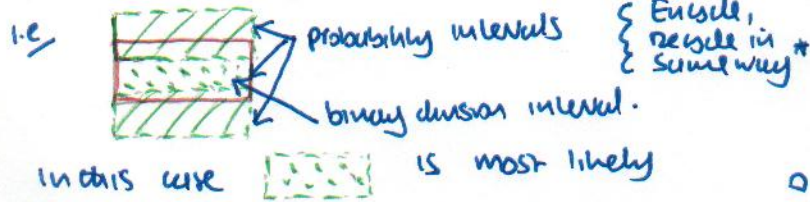 i.e
probability intervals
{ Encycle,
{ decycle in *
{ same way
binary division interval.
in this case is most likely